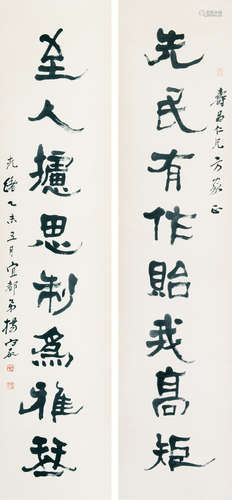 壽昌仁兄方家正
先民有作貽我高矩
至人攄思制爲雅琴
光緒乙未三月宜都弟楊守敬